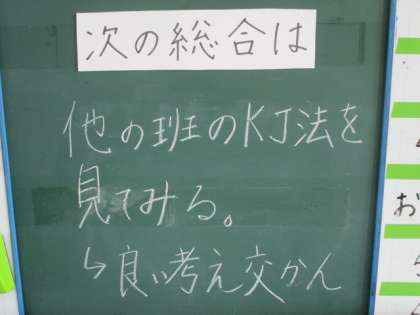 次の総合は
他の班のKJ法を
見てみる。
↳良い考え交かん
お